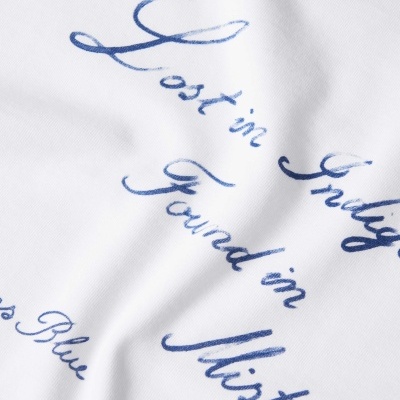 Lost in
Indig
Found in
Mist
s Blue